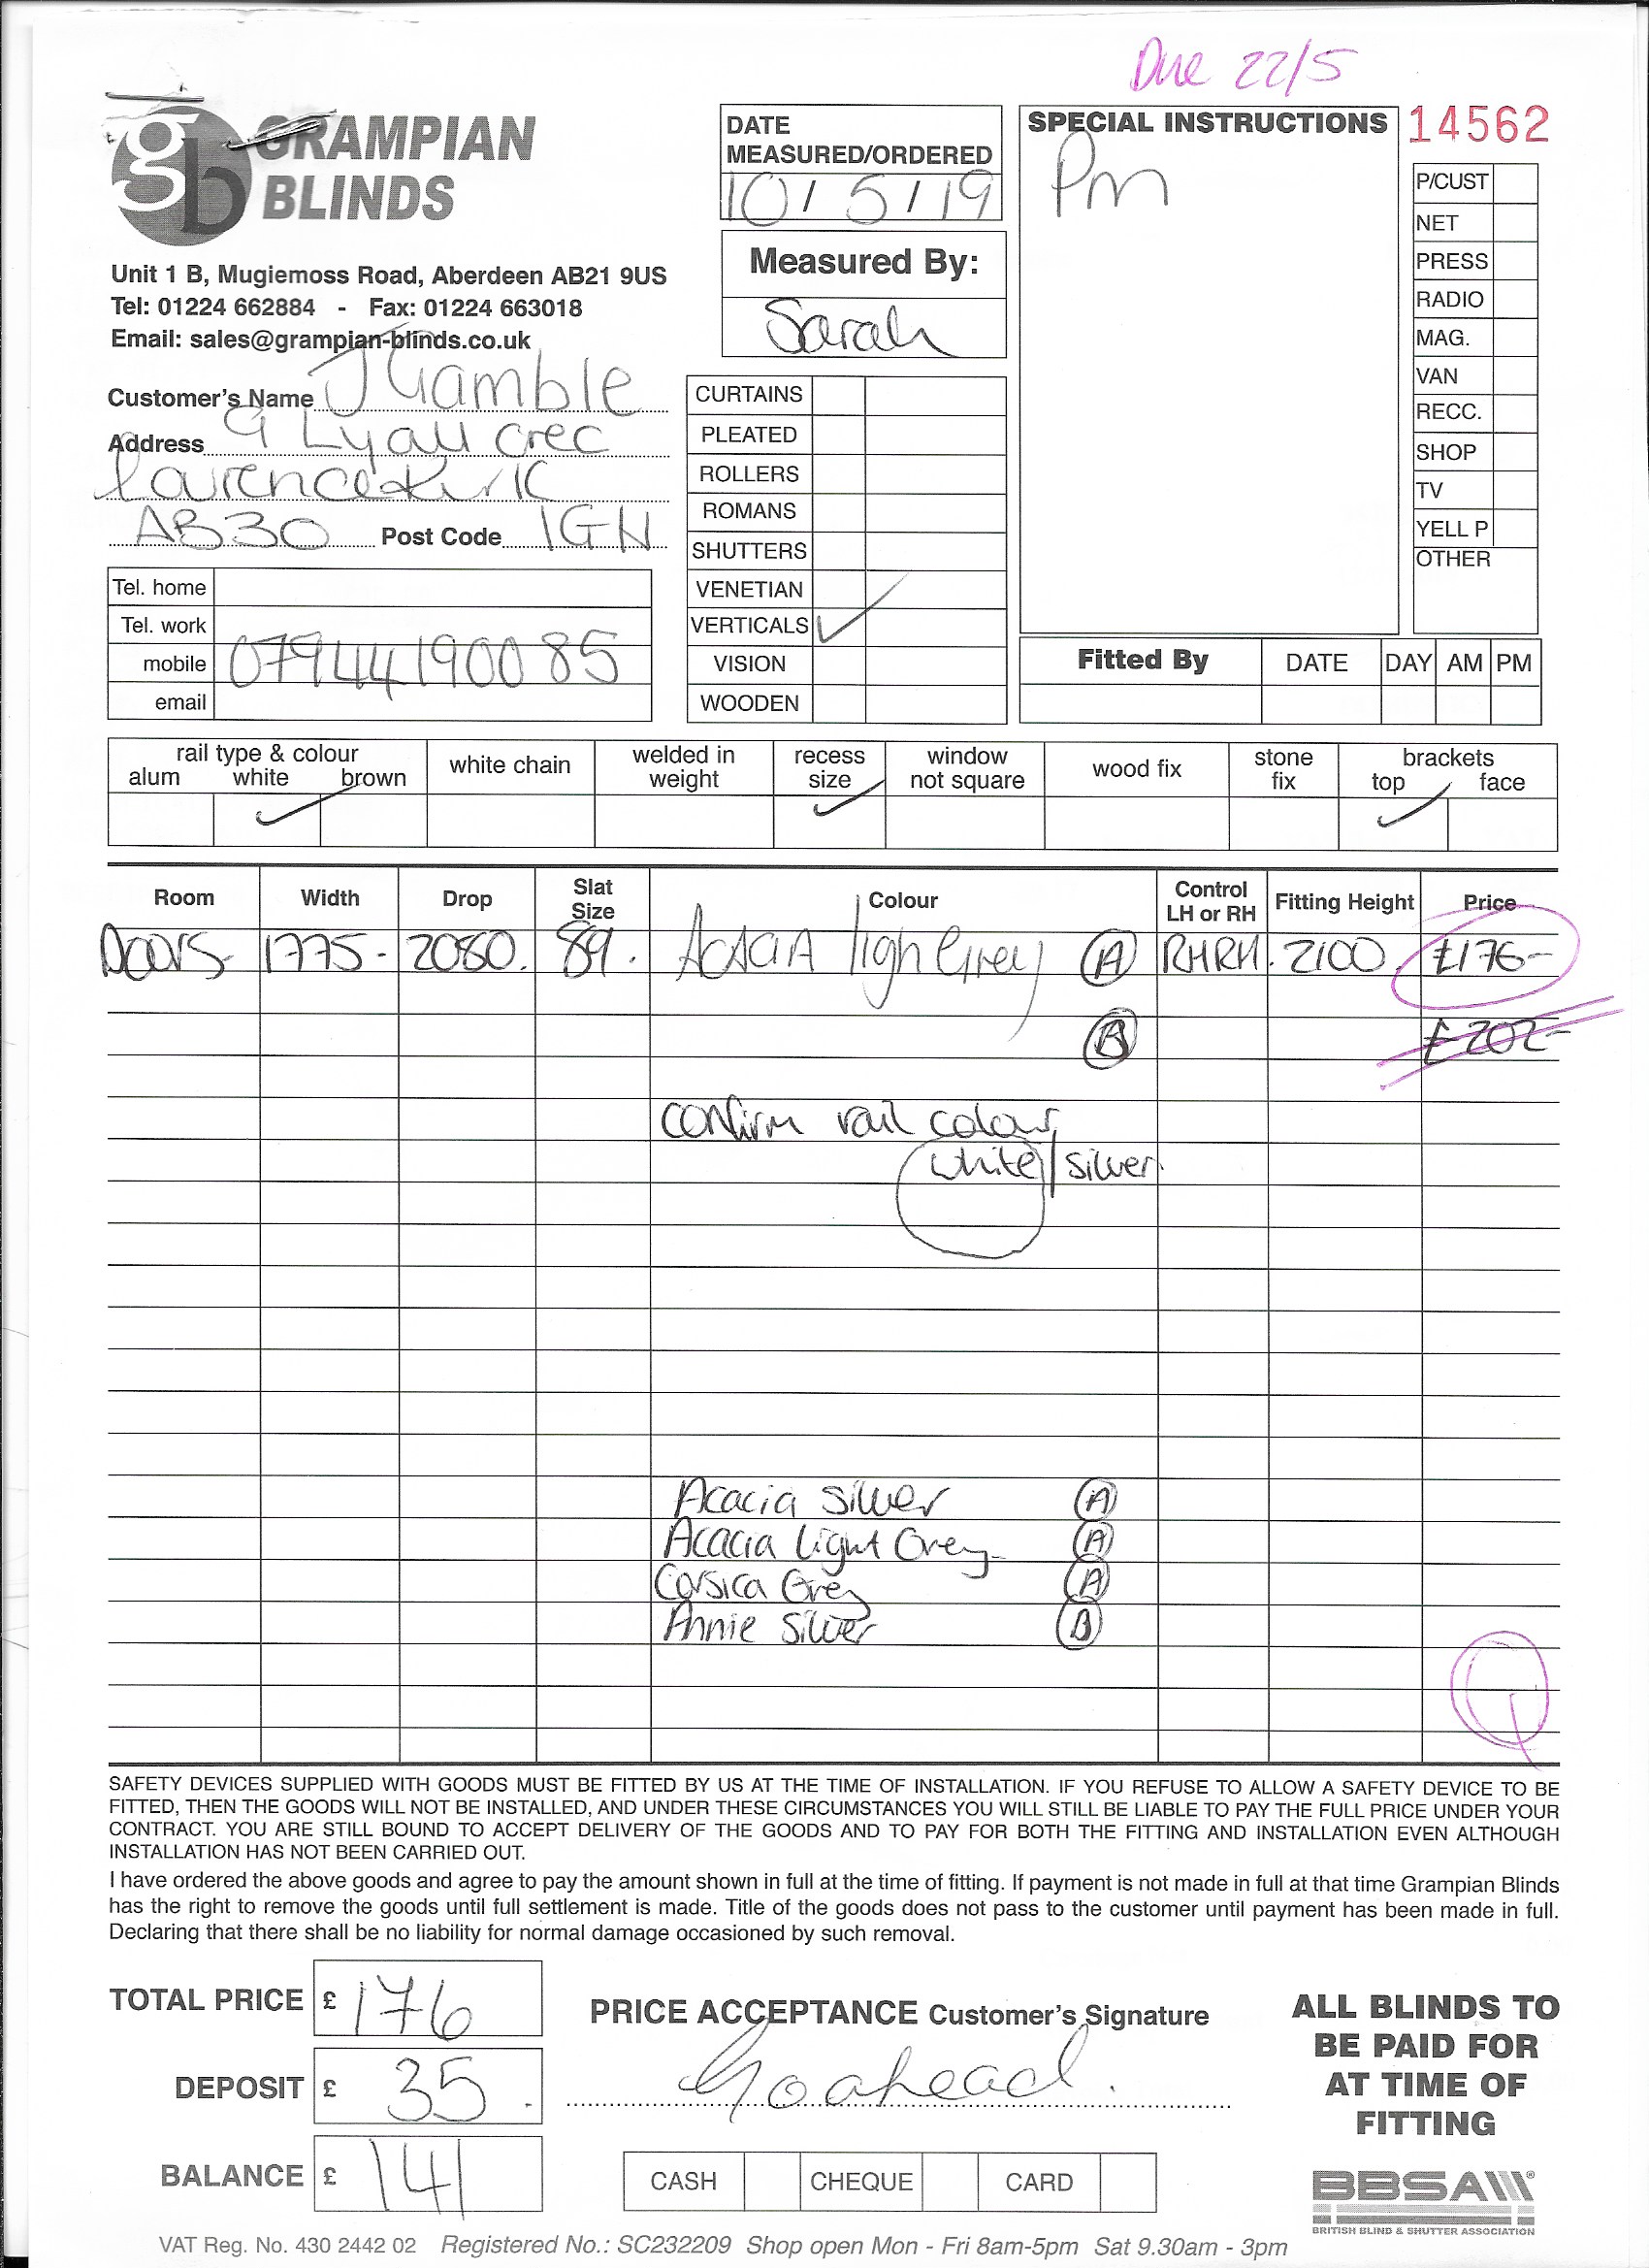 Due 22/5
gb GRAMPIAN
BLINDS
Unit 1 B, Mugiemoss Road, Aberdeen AB21 9US
Tel: 01224 662884 - Fax: 01224 663018
Email: sales@grampian-blinds.co.uk
Customer's Name J Gamble
Address 9 Lyall Crec
Laurencekirk
AB30 Post Code 1GN
Tel. home
Tel. work
mobile 07944190085
email
DATE
MEASURED/ORDERED
10/5/19
Measured By:
Sarah
CURTAINS
PLEATED
ROLLERS
ROMANS
SHUTTERS
VENETIAN
VERTICALS ✓
VISION
WOODEN
SPECIAL INSTRUCTIONS
Pm
14562
P/CUST
NET
PRESS
RADIO
MAG.
VAN
RECC.
SHOP
TV
YELL P
OTHER
Fitted By DATE DAY AM PM
rail type & colour white chain welded in weight recess size window not square wood fix stone fix brackets
alum white brown top face
✓ ✓ ✓
Room Width Drop Slat Size Colour Control LH or RH Fitting Height Price
Doors 1775 2080 89 Acacia ligh Grey A RHRH 2100 £176-
B £202-
Confirm rail colour
white / silver
Acacia Silver A
Acacia Light Grey A
Corsica Grey A
Annie Silver B
SAFETY DEVICES SUPPLIED WITH GOODS MUST BE FITTED BY US AT THE TIME OF INSTALLATION. IF YOU REFUSE TO ALLOW A SAFETY DEVICE TO BE
FITTED, THEN THE GOODS WILL NOT BE INSTALLED, AND UNDER THESE CIRCUMSTANCES YOU WILL STILL BE LIABLE TO PAY THE FULL PRICE UNDER YOUR
CONTRACT. YOU ARE STILL BOUND TO ACCEPT DELIVERY OF THE GOODS AND TO PAY FOR BOTH THE FITTING AND INSTALLATION EVEN ALTHOUGH
INSTALLATION HAS NOT BEEN CARRIED OUT.
I have ordered the above goods and agree to pay the amount shown in full at the time of fitting. If payment is not made in full at that time Grampian Blinds
has the right to remove the goods until full settlement is made. Title of the goods does not pass to the customer until payment has been made in full.
Declaring that there shall be no liability for normal damage occasioned by such removal.
TOTAL PRICE £ 176
DEPOSIT £ 35
BALANCE £ 141
PRICE ACCEPTANCE Customer's Signature
Goahead.
CASH CHEQUE CARD
ALL BLINDS TO
BE PAID FOR
AT TIME OF
FITTING
BBSA
BRITISH BLIND & SHUTTER ASSOCIATION
VAT Reg. No. 430 2442 02 Registered No.: SC232209 Shop open Mon - Fri 8am-5pm Sat 9.30am - 3pm